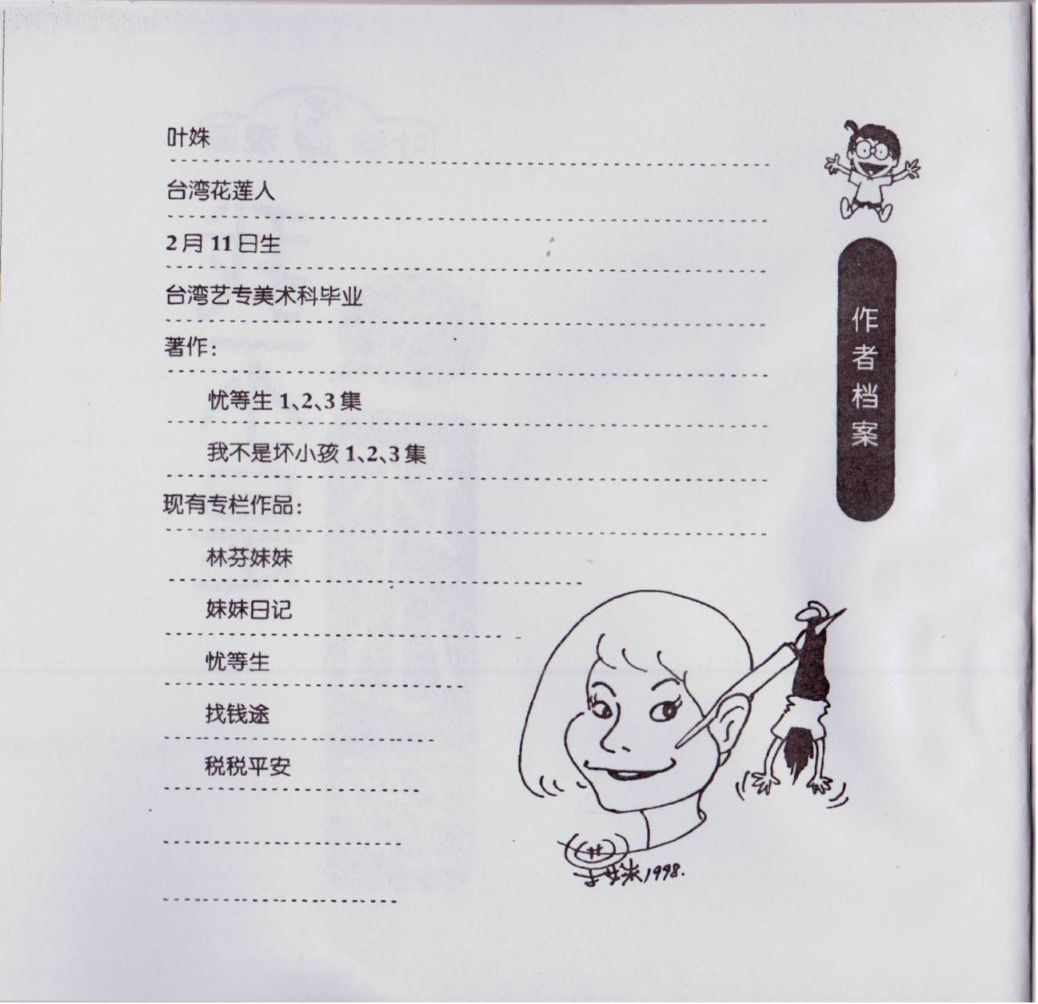 叶姝
台湾花莲人
2月11日生
台湾艺专美术科毕业
著作：
忧等生1、2、3集
我不是坏小孩1、2、3集
现有专栏作品：
林芬妹妹
妹妹日记
忧等生
找钱途
税税平安
作者档案
1998.